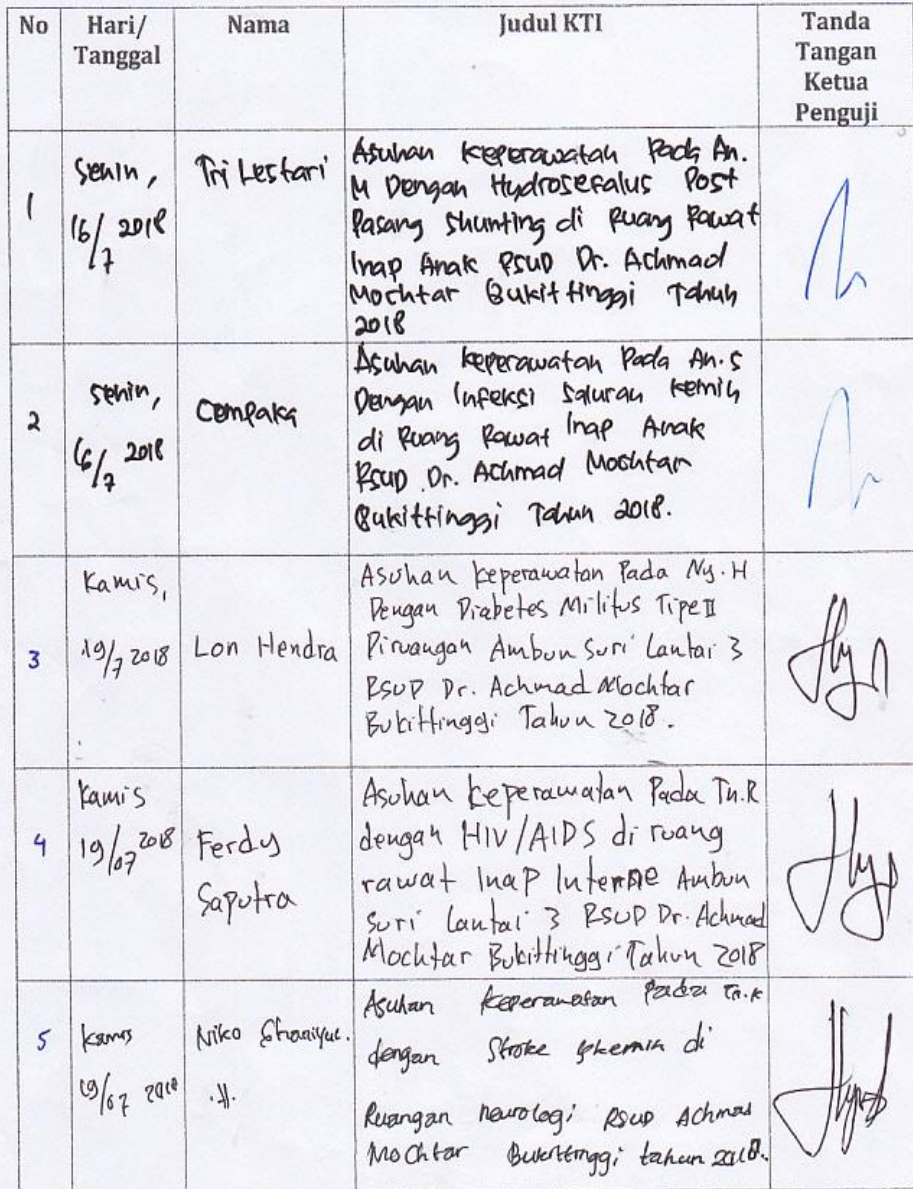 No Hari/ Nama Judul KTI Tanda
Tanggal Tangan
Ketua
Penguji
1 Senin, Tri Lestari Asuhan Keperawatan Pada An.
16/7 2018 M Dengan Hydrosefalus Post
Pasang Shunting di Ruang Rawat
Inap Anak RSUD Dr. Achmad
Mochtar Bukittinggi Tahun
2018
2 Senin, Cempaka Asuhan Keperawatan Pada An. S
16/7 2018 Dengan Infeksi Saluran Kemih
di Ruang Rawat Inap Anak
RSUD Dr. Achmad Mochtar
Bukittinggi Tahun 2018.
3 Kamis, Lon Hendra Asuhan Keperawatan Pada Ny. H
19/7 2018 Dengan Diabetes Militus Tipe II
Diruangan Ambun Suri Lantai 3
RSUD Dr. Achmad Mochtar
Bukittinggi Tahun 2018.
4 Kamis Ferdy Saputra Asuhan Keperawatan Pada Tn. R
19/07 2018 dengan HIV/AIDS di ruang
rawat Inap Interne Ambun
Suri Lantai 3 RSUD Dr. Achmad
Mochtar Bukittinggi Tahun 2018
5 Kamis Niko Asuhan Keperawatan Pada Tn. K
19/07 2018 .H. dengan Stroke di
Ruangan neurologi RSUD Achmad
Mochtar Bukittinggi tahun 2018.